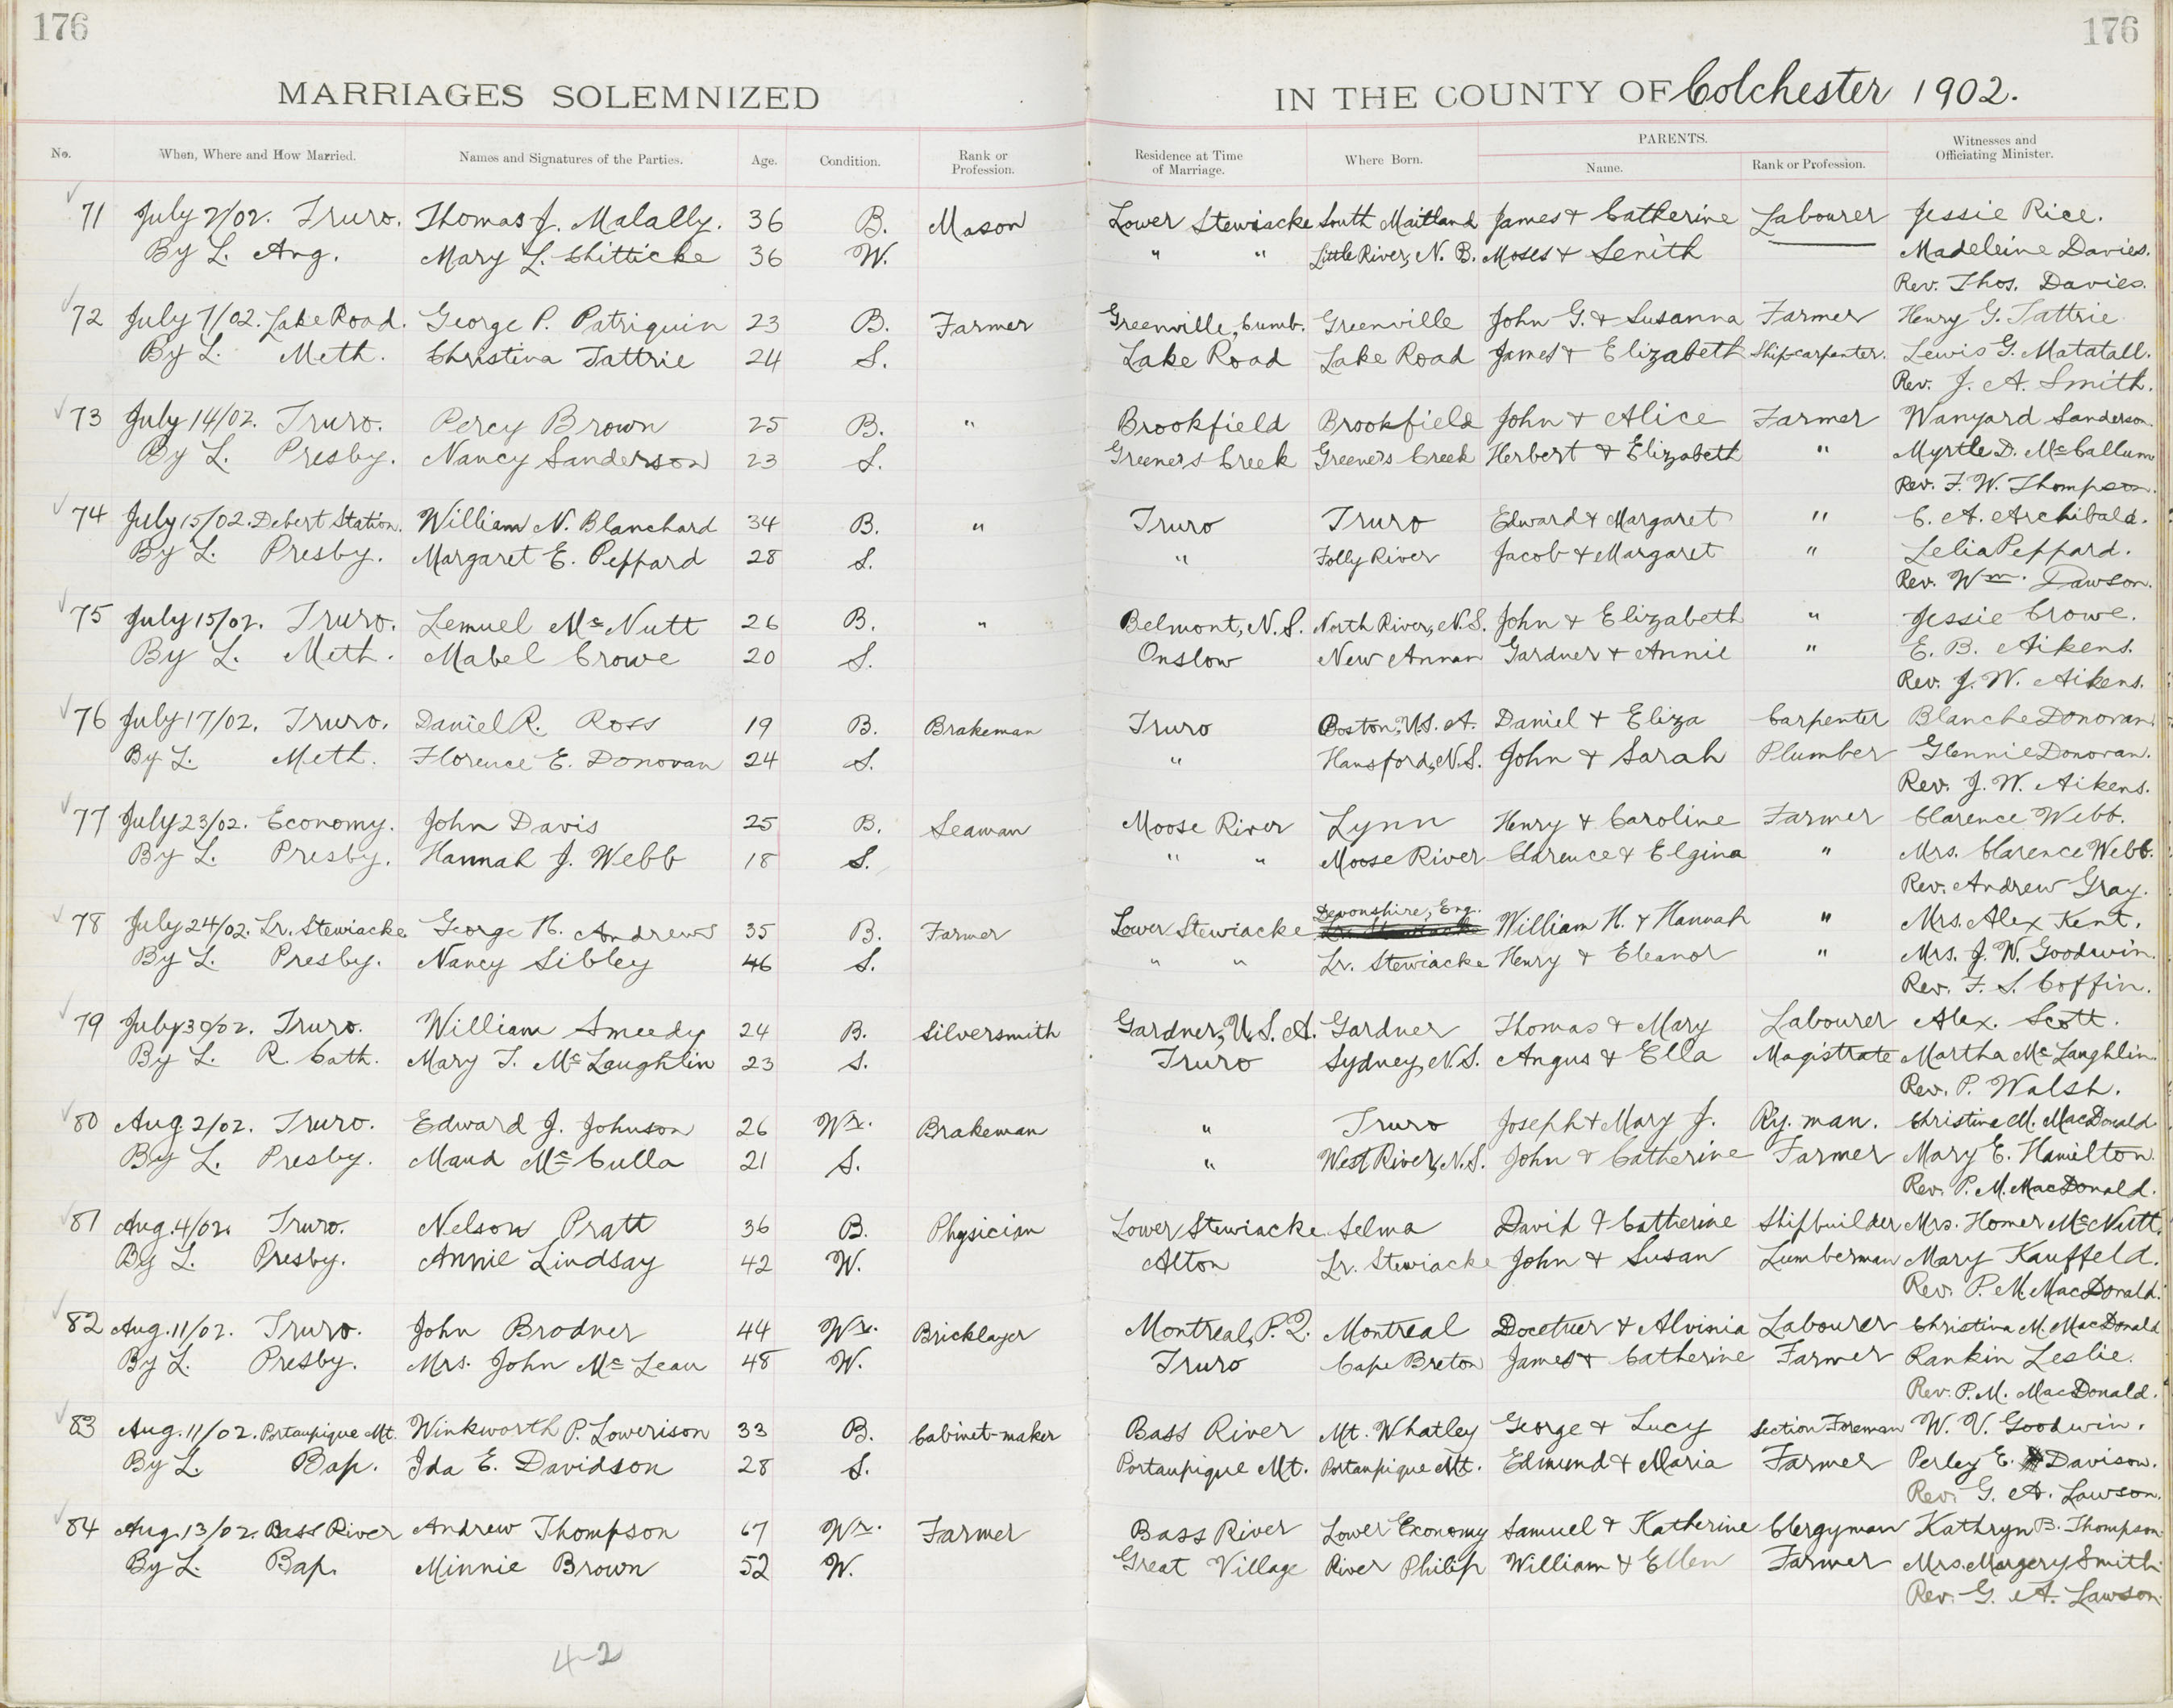 176 176
MARRIAGES SOLEMNIZED IN THE COUNTY OF Colchester 1902.
No. When, Where and How Married. Names and Signatures of the Parties. Age. Condition. Rank or Profession. Residence at Time of Marriage. Where Born. PARENTS. Name. Rank or Profession. Witnesses and Officiating Minister.
71 July 2/02. Truro. Thomas J. Malally. 36 B. Mason Lower Stewiacke South Maitland James & Catherine Labourer Jessie Rice.
By L. Ang. Mary L. Chitticke 36 W. " " Little River, N. B. Moses & Senith Madeleine Davies.
Rev. Thos. Davies.
72 July 7/02. Lake Road. George P. Patriquin 23 B. Farmer Greenville, Cumb. Greenville John G. & Susanna Farmer Henry G. Tattrie
By L. Meth. Christina Tattrie 24 S. Lake Road Lake Road James & Elizabeth Ship-carpenter. Lewis G. Matatall.
Rev. J. A. Smith.
73 July 14/02. Truro. Percy Brown 25 B. " Brookfield Brookfield John & Alice Farmer Wanyard Sanderson.
By L. Presby. Nancy Sanderson 23 S. Greene's Creek Greene's Creek Herbert & Elizabeth " Myrtle D. McCallum
Rev. F. W. Thompson.
74 July 15/02. Debert Station. William N. Blanchard 34 B. " Truro Truro Edward & Margaret " C. A. Archibald.
By L. Presby. Margaret E. Peppard 28 S. " Folly River Jacob & Margaret " Lelia Peppard.
Rev. Wm. Dawson.
75 July 15/02. Truro. Lemuel McNutt 26 B. " Belmont, N.S. North River, N.S. John & Elizabeth " Jessie Crowe.
By L. Meth. Mabel Crowe 20 S. Onslow New Annan Gardner & Annie " E. B. Aikens.
Rev. J. W. Aikens.
76 July 17/02. Truro. Daniel R. Ross 19 B. Brakeman Truro Boston, U.S.A. Daniel & Eliza Carpenter Blanche Donovan
By L. Meth. Florence E. Donovan 24 S. " Hansford, N.S. John & Sarah Plumber Glennie Donovan.
Rev. J. W. Aikens.
77 July 23/02. Economy. John Davis 25 B. Seaman Moose River Lynn Henry & Caroline Farmer Clarence Webb.
By L. Presby. Hannah J. Webb 18 S. " " Moose River Clarence & Elgina " Mrs. Clarence Webb.
Rev. Andrew Gray.
78 July 24/02. Lr. Stewiacke George H. Andrews 35 B. Farmer Lower Stewiacke Devonshire, Eng. William H. & Hannah " Mrs. Alex Kent.
By L. Presby. Nancy Sibley 46 S. " " Lr. Stewiacke Henry & Eleanor " Mrs. J. W. Goodwin.
Rev. F. S. Coffin.
79 July 30/02. Truro. William Smeedy 24 B. Silversmith Gardner, U.S.A. Gardner Thomas & Mary Labourer Alex. Scott.
By L. R. Cath. Mary T. McLaughlin 23 S. Truro Sydney, N.S. Angus & Ella Magistrate Martha McLaughlin.
Rev. P. Walsh.
80 Aug 2/02. Truro. Edward J. Johnson 26 Wr. Brakeman " Truro Joseph & Mary J. Ry. man. Christina M. MacDonald.
By L. Presby. Maud McCulla 21 S. " West River, N.S. John & Catherine Farmer Mary E. Hamilton.
Rev. P. M. MacDonald.
81 Aug. 4/02. Truro. Nelson Pratt 36 B. Physician Lower Stewiacke Selma David & Catherine Shipbuilder Mrs. Homer McNutt.
By L. Presby. Annie Lindsay 42 W. Alton Lr. Stewiacke John & Susan Lumberman Mary Kauffeld.
Rev. P. M. MacDonald.
82 Aug. 11/02. Truro. John Brodner 44 Wr. Bricklayer Montreal, P.Q. Montreal Docetuer & Alvinia Labourer Christina M. MacDonald
By L. Presby. Mrs. John McLean 48 W. Truro Cape Breton James & Catherine Farmer Rankin Leslie.
Rev. P. M. MacDonald.
83 Aug. 11/02. Portaupique Mt. Winkworth P. Lowerison 33 B. Cabinet-maker Bass River Mt. Whatley George & Lucy Section Foreman W. V. Goodwin.
By L. Bap. Ida E. Davidson 28 S. Portaupique Mt. Portaupique Mt. Edmund & Maria Farmer Perley E. Davison.
Rev. G. A. Lawson.
84 Aug. 13/02. Bass River Andrew Thompson 67 Wr. Farmer Bass River Lower Economy Samuel & Katherine Clergyman Kathryn B. Thompson
By L. Bap. Minnie Brown 52 W. Great Village River Philip William & Ellen Farmer Mrs. Margery Smith.
Rev. G. A. Lawson.
4-2